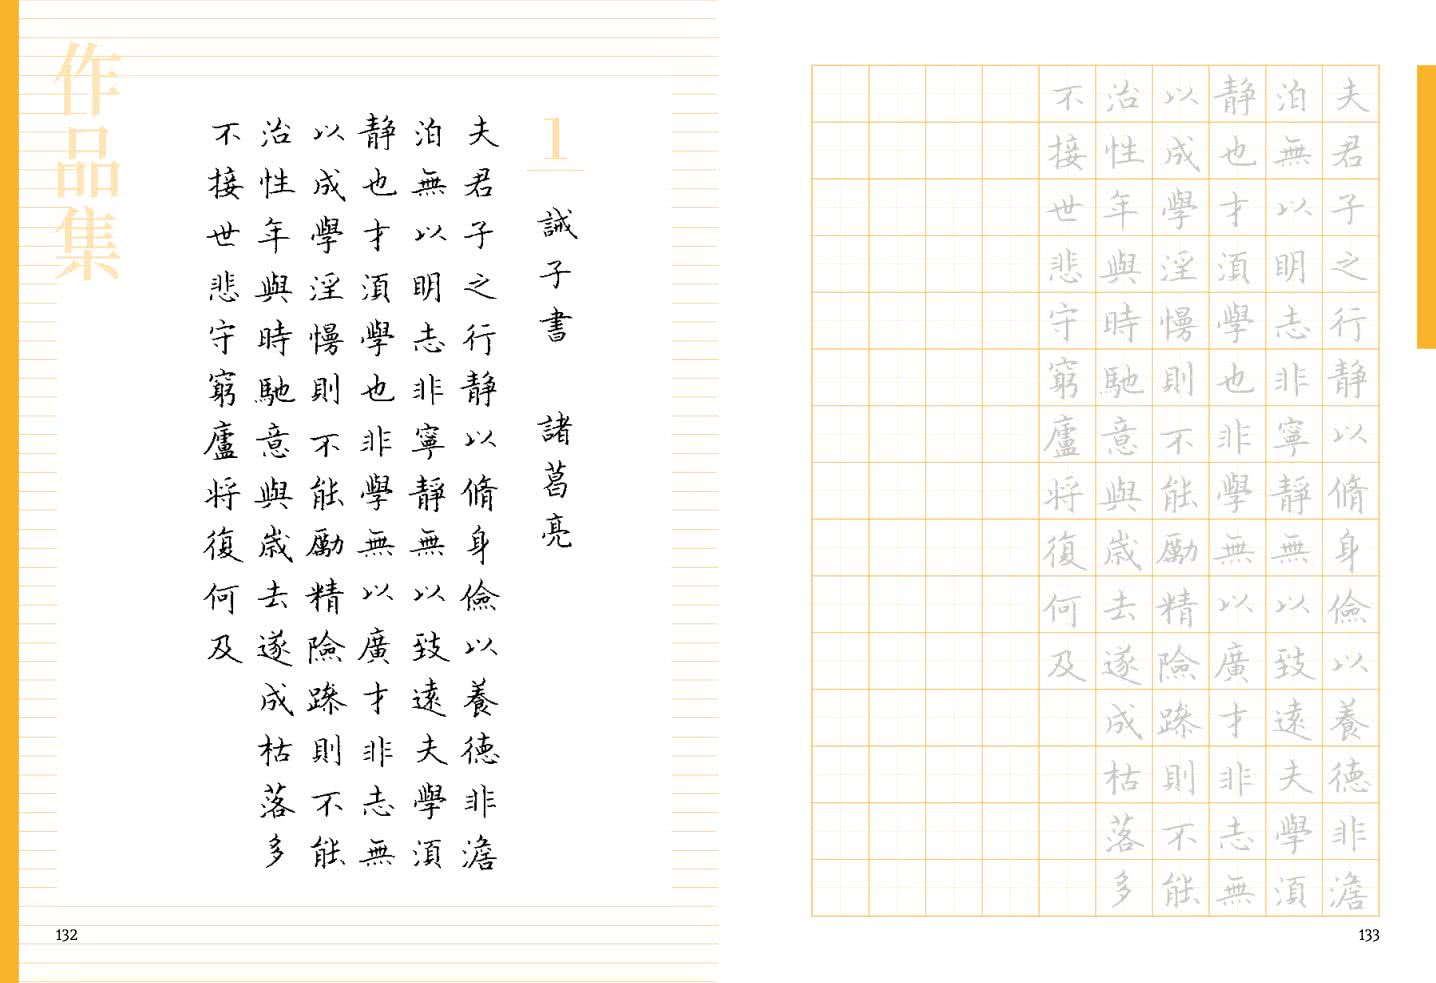 作品集
1
誡子書 諸葛亮
夫君子之行静以脩身儉以養德非澹
泊無以明志非寧静無以致遠夫學須
静也才須學也非學無以廣才非志無
以成學淫慢則不能勵精險躁則不能
治性年與時馳意與歲去遂成枯落多
不接世悲守窮廬將復何及
132
夫君子之行静以脩身儉以養德非澹
泊無以明志非寧静無以致遠夫學須
静也才須學也非學無以廣才非志無
以成學淫慢則不能勵精險躁則不能
治性年與時馳意與歲去遂成枯落多
不接世悲守窮廬將復何及
133